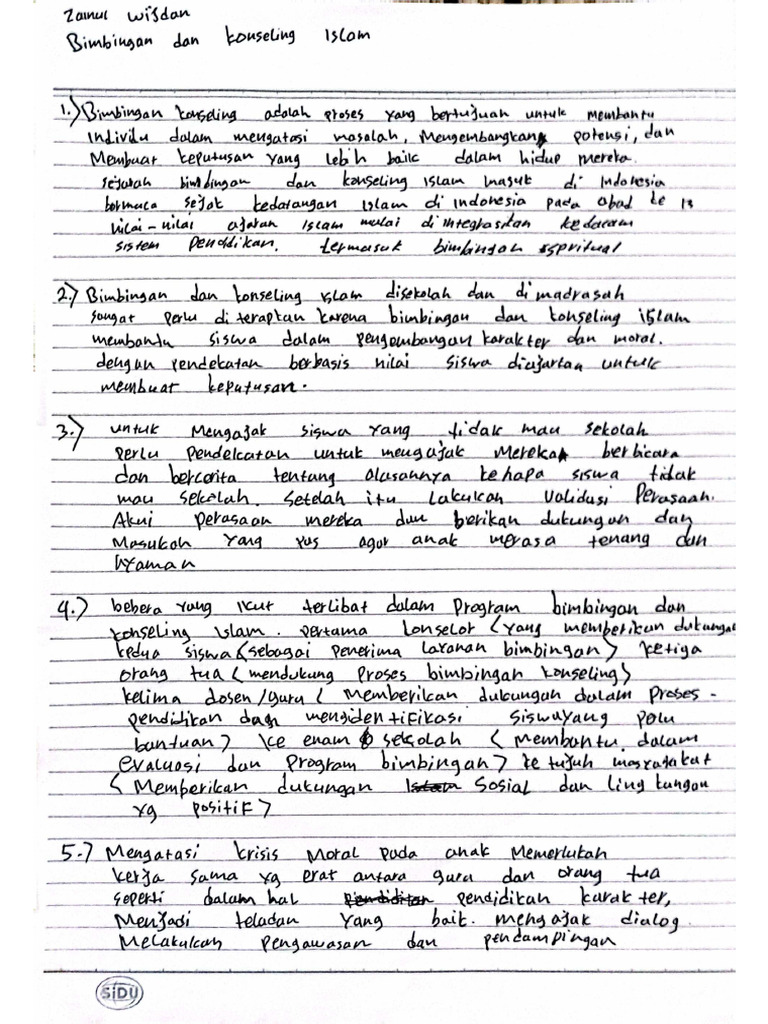 Zainul Wisdan
Bimbingan dan konseling Islam
1.) Bimbingan konseling adalah proses yang bertujuan untuk membantu
Individu dalam mengatasi masalah, Mengembangkan potensi, dan
Membuat keputusan yang lebih baik dalam hidup mereka.
sejarah bimbingan dan konseling Islam masuk di Indonesia
bermula sejak kedatangan Islam di Indonesia pada abad ke 13
nilai-nilai ajaran Islam mulai di integrasikan kedalam
sistem Pendidikan. termasuk bimbingan spritual
2.) Bimbingan dan konseling Islam disekolah dan di madrasah
sangat perlu di terapkan karena bimbingan dan konseling islam
membantu siswa dalam pengembangan karakter dan moral.
dengan pendekatan berbasis nilai siswa diajarkan untuk
membuat keputusan.
3.) untuk Mengajak siswa yang tidak mau sekolah
perlu pendekatan untuk mengajak Mereka berbicara
dan bercerita tentang alasannya kenapa siswa tidak
mau sekolah. Setelah itu lakukan validasi Perasaan.
Akui perasaan mereka dan berikan dukungan dan
Masukan yang pas agar anak merasa tenang dan
nyaman
4.) bebera yang ikut terlibat dalam Program bimbingan dan
konseling Islam. pertama konselor (yang memberikan dukungan
kedua siswa (sebagai penerima layanan bimbingan) ketiga
orang tua (mendukung Proses bimbingan konseling)
kelima dosen/guru (Memberikan dukungan dalam Proses -
pendidikan dan mengidentifikasi siswa yang perlu
bantuan) ke enam sekolah (Membantu dalam
evaluasi dan Program bimbingan) ke tujuh masyarakat
(Memberikan dukungan Sosial dan lingkungan
yg positif)
5.) Mengatasi krisis Moral pada anak Memerlukan
kerja sama yg erat antara guru dan orang tua
seperti dalam hal pendidikan karakter,
Menjadi teladan yang baik. mengajak dialog.
Melakukan pengawasan dan pendampingan
SiDU